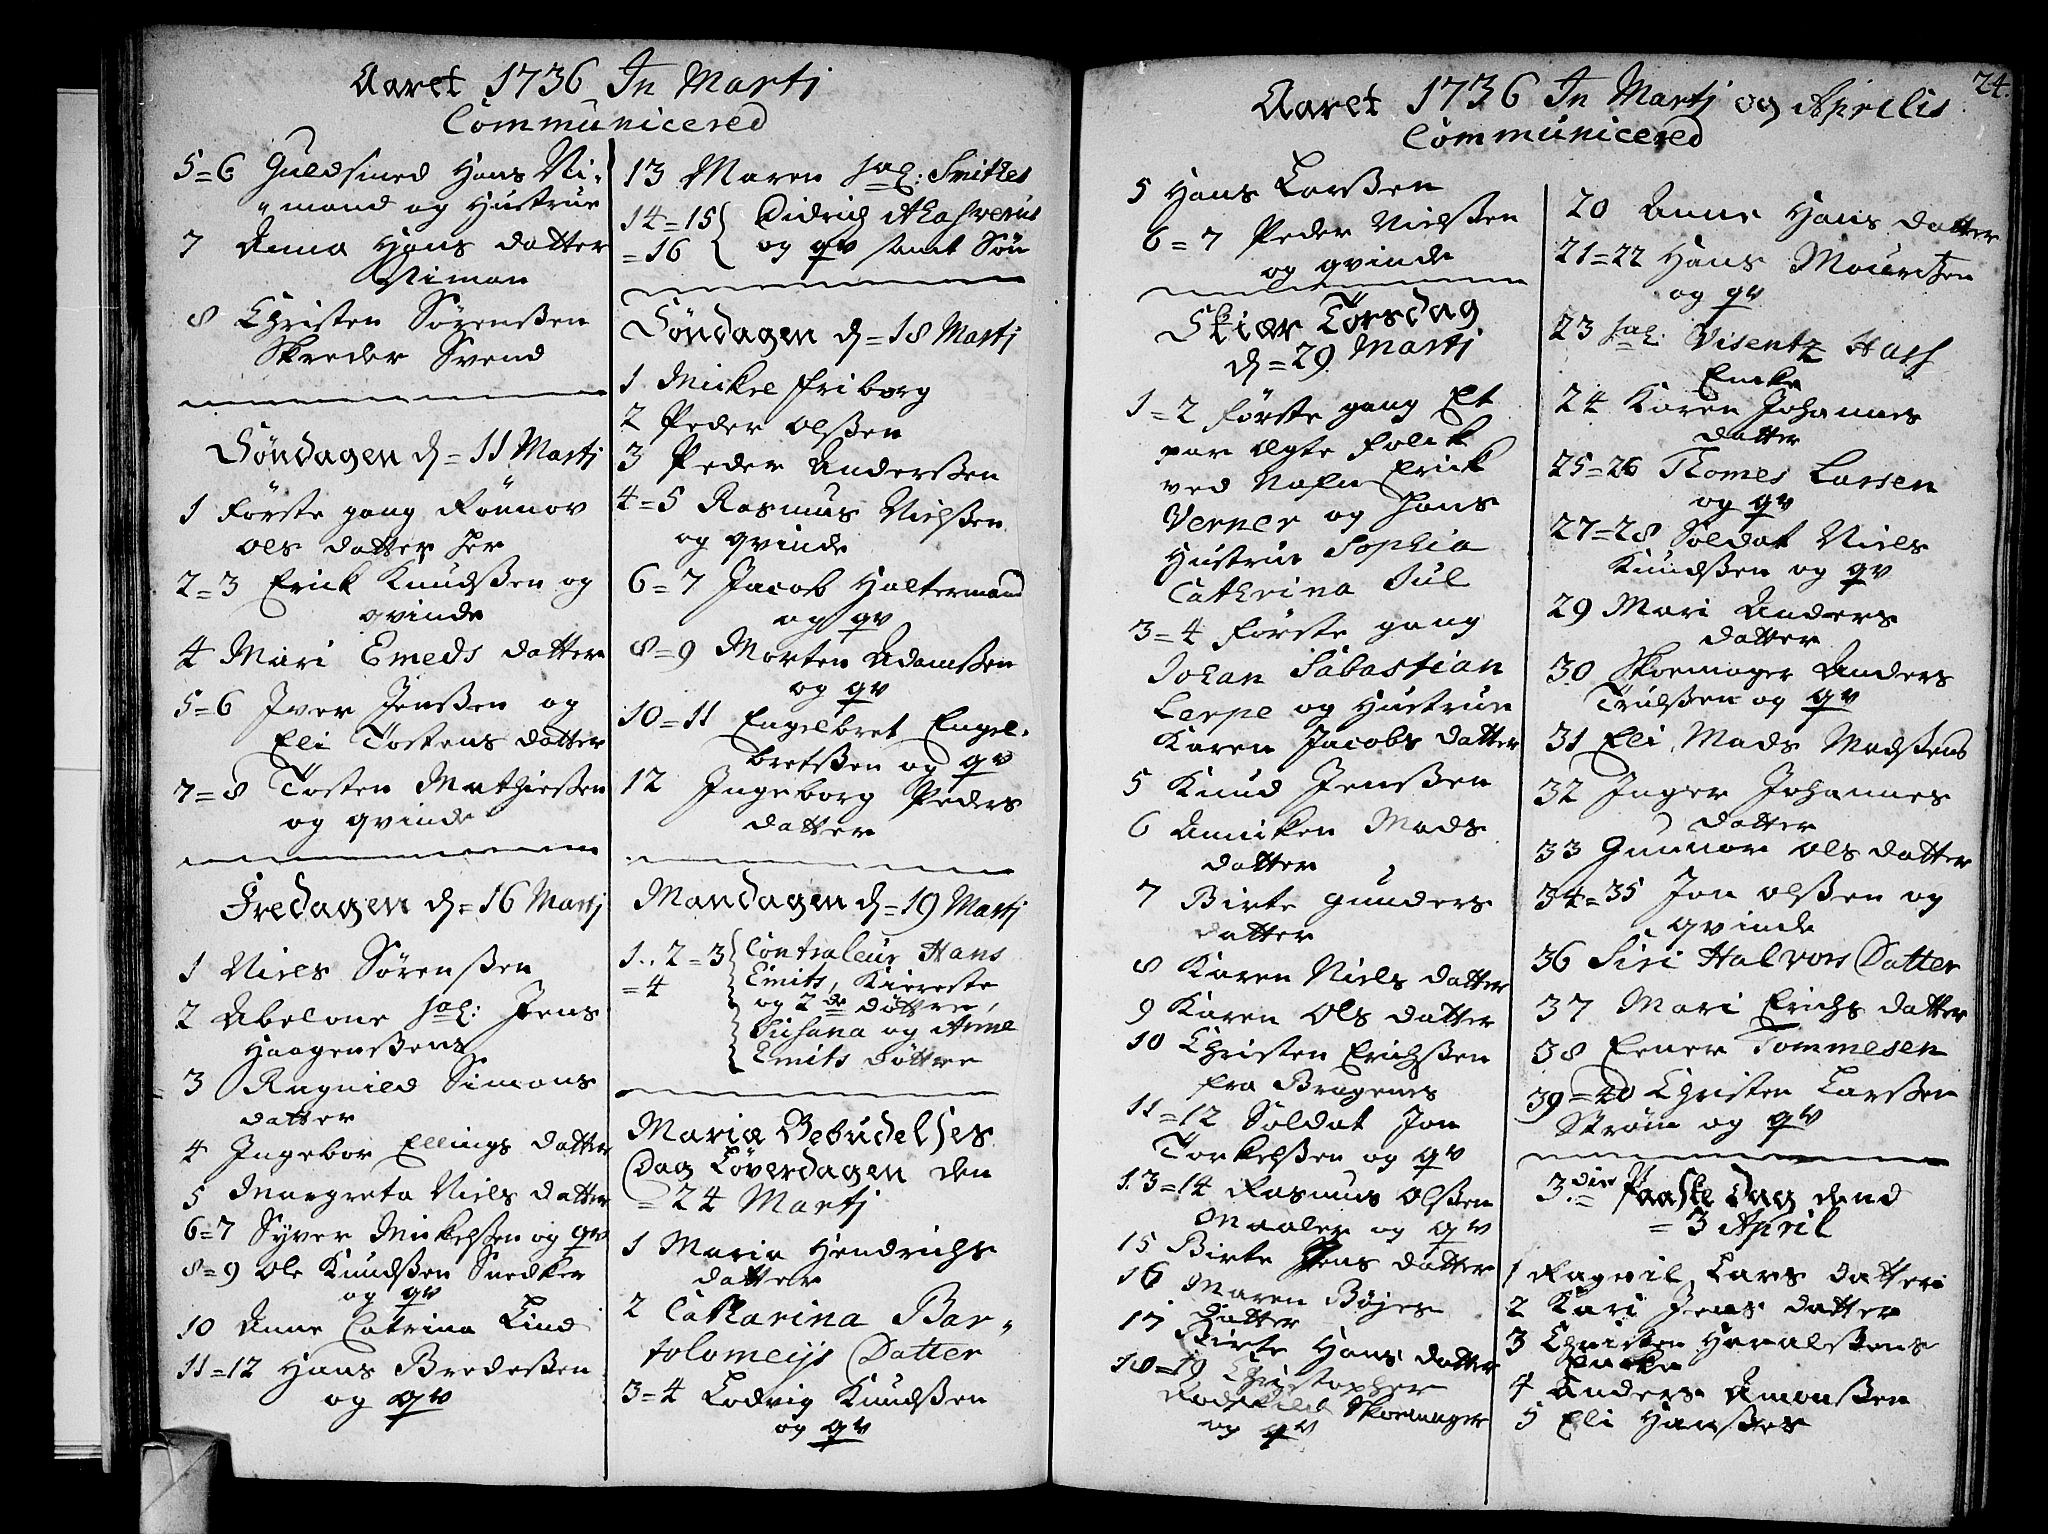 Aaret 1736 In Martj
Communicered
5=6 Guldsmed Hans Ni-
mand og Hustrue
7 Anna Hans datter
Niman
8 Christen Sørenssen
Skreder Svend
Søndagen d=11 Martj
1 Første gang Rönnov
Ols datter her
2=3 Erick Knudssen og
qvinde
4 Mari Emeds datter
5=6 Iver Jenssen og
Eli Tostens datter
7=8 Tosten Mathiessen
og qvinde
Fredagen d=16 Martj
1 Niels Sørenssen
2 Abelone sal: Jens
Haagenssens
3 Ragnild Simons
datter
4 Ingebor Ellings datter
5 Margreta Niels datter
6=7 Syver Mickelssen og qv
8=9 Ole Knudssen Snedker
og qv
10 Anne Catrina Lind
11=12 Hans Bredessen
og qv
13 Maren sal: Smithes
14=15 Didrich Ahasverus
=16 og qv samt Søn
Søndagen d=18 Martj
1 Mickel Friborg
2 Peder Olssen
3 Peder Anderssen
4=5 Rasmus Nielssen
og qvinde
6=7 Jacob Haltermand
og qv
8=9 Morten Adamssen
og qv
10=11 Engelbret Engel-
bretssen og qv
12 Ingeborg Peders
datter
Mandagen d=19 Martj
1., 2=3 Contraleur Hans
=4 Emits, Kiereste
og 2de døttre,
Susana og Anne
Emits Døttre
Mariæ Bebudelses
Dag Løverdagen den
=24 Martj
1 Maria Hendrichs
datter
2 Catharina Bar-
tolomeijs Datter
3=4 Lodvig Knudssen
og qv
24.
Aaret 1736 In Martj og Aprilis
Communicered
5 Hans Larssen
6=7 Peder Nielssen
og qvinde
Skiær Torsdag
d=29 Martj
1=2 første gang Et
par Egte Folck
ved Nafn Erick
Verner og hans
Hustrue Sophia
Cathrina Jul
3=4 første gang
Johan Sabastian
Lerpe og Hustrue
Karen Jacobs datter
5 Knud Jenssen
6 Anniken Mads
datter
7 Birte gunders
datter
8 Karen Niels datter
9 Karen Ols datter
10 Christen Erichssen
fra Bragenes
11=12 Soldat Jon
Torkelssen og qv
13=14 Rasmus Olssen
Maaler og qv
15 Birte Jens datter
16 Maren Bøjes
datter
17 Birte Hans datter
18=19 Christopher
Rodskild Skoemager
og qv
20 Anne Hans datter
21=22 Hans Mouritzen
og qv
23 sal: Visentz Hass
Encke
24 Karen Johannes
datter
25=26 Thomes Larsen
og qv
27=28 Soldat Niels
Knudssen og qv
29 Mari Anders
datter
30 Skoemager Anders
Trulssen og qv
31 Eli Mads Madssens
32 Inger Johannes
datter
33 Gunnor Ols datter
34=35 Jon Olssen og
qvinde
36 Siri Halvors Datter
37 Mari Erichs datter
38 Eener Tommesen
39=40 Christen Larssen
Strøm og qv
3.die Paaske Dag dend
=3 April
1 Ragnil Lars datter
2 Kari Jens datter
3 Christen Haralssens
Encke
4 Anders Amonssen
5 Eli Hanssens